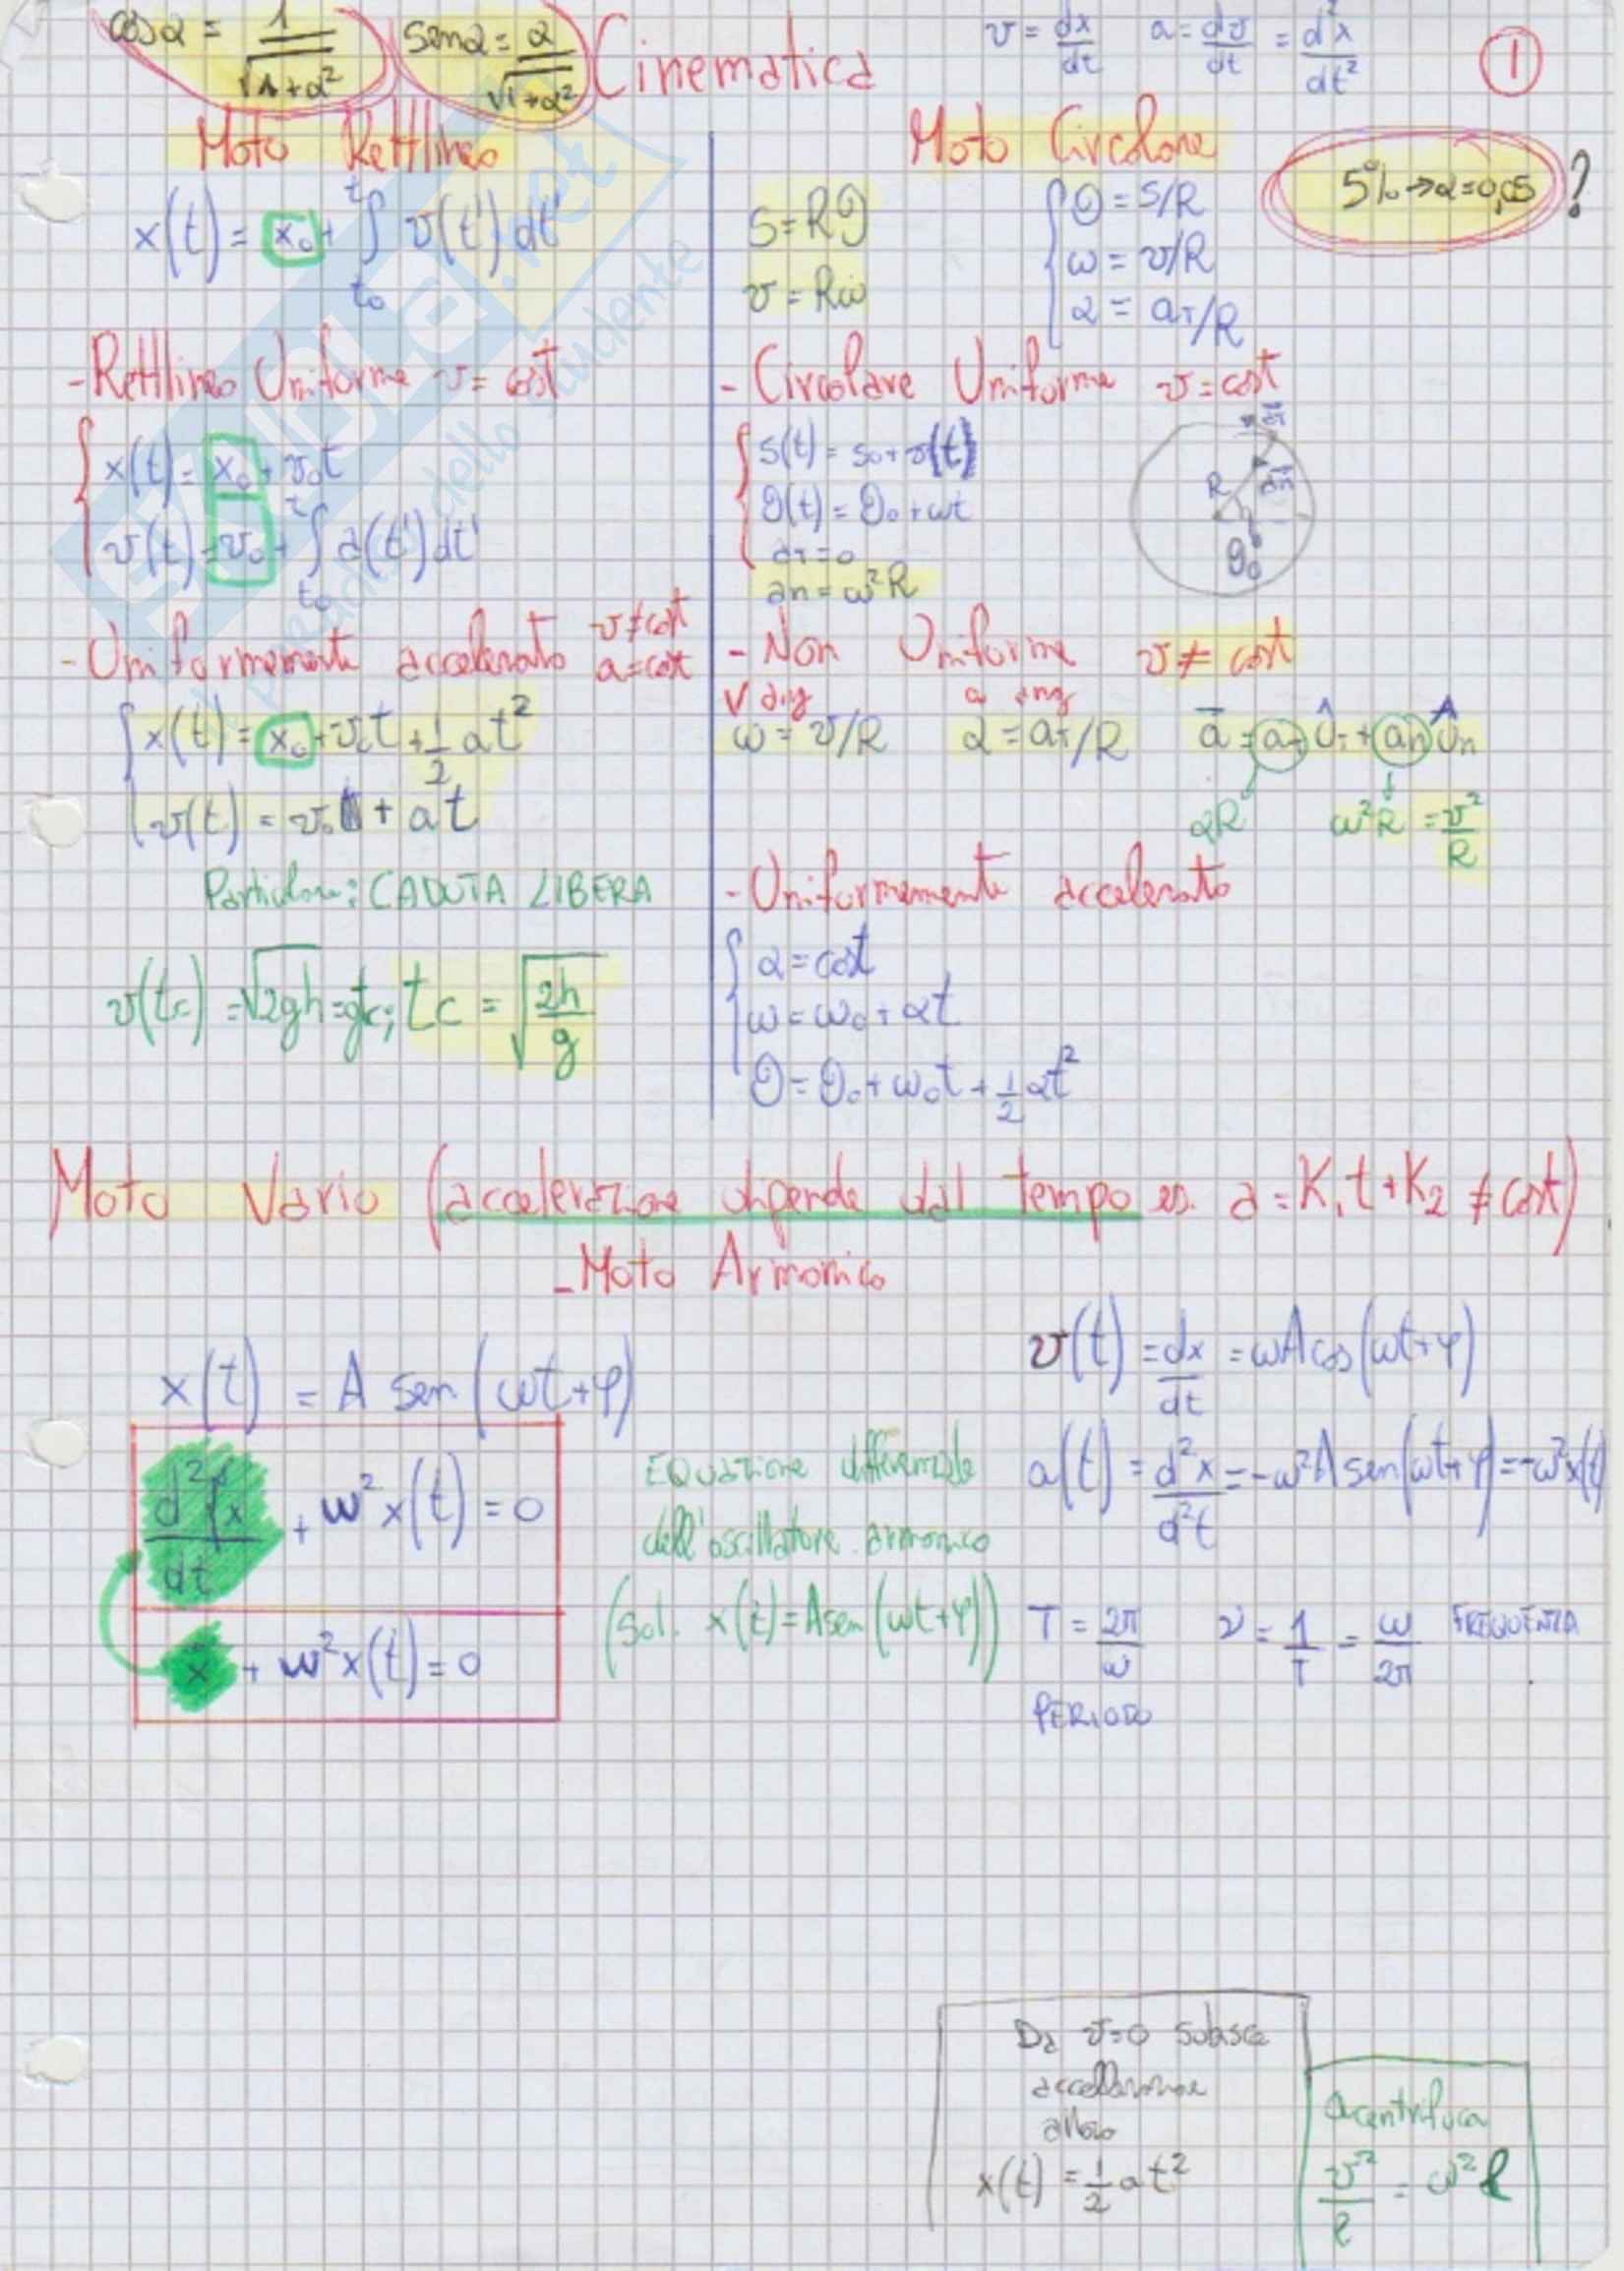 cos α = 1/√1+α² sen α = α/√1+α² Cinematica v = dx/dt a = dv/dt = d²x/dt² 1
Moto Rettlineo
x(t) = x₀ + ∫ₜ₀ᵗ v(t') dt'
- Rettlineo Uniforme v = cost
x(t) = x₀ + v₀t
v(t) = v₀ + ∫ₜ₀ᵗ a(t') dt'
- Uniformemente accelerato v ≠ cost a = cost
x(t) = x₀ + v₀t + 1/2 at²
v(t) = v₀ + at
Particolare: CADUTA LIBERA
v(tc) = √2gh = gtc; tc = √2h/g
Moto Circolare
5% → α = 0,05 ?
S = Rθ
v = Rω
θ = S/R
ω = v/R
α = aT/R
- Circolare Uniforme v = cost
s(t) = s₀ + v(t)
θ(t) = θ₀ + ωt
aT = 0
an = ω²R
R
θ₀
- Non Uniforme v ≠ cost
V ang a ang
ω = v/R α = aT/R a = aT ÛT + an Ûn
αR ω²R = v²/R
- Uniformemente accelerato
α = cost
ω = ω₀ + αt
θ = θ₀ + ω₀t + 1/2 αt²
Moto Vario (accelerazione dipende dal tempo es. a = K₁t + K₂ ≠ cost)
- Moto Armonico
x(t) = A sen (ωt + φ)
v(t) = dx/dt = ωA cos (ωt + φ)
a(t) = d²x/d²t = -ω²A sen (ωt + φ) = -ω²x(t)
d²x/dt + ω²x(t) = 0
ẍ + ω²x(t) = 0
EQuazione differenziale
dell'oscillatore armonico
(sol. x(t) = A sen (ωt + φ))
T = 2π/ω ν = 1/T = ω/2π FREQUENZA
PERIODO
Da v = 0 subisce
accellerazione
allora
x(t) = 1/2 at²
acentrifuca
v²/R = ω²R